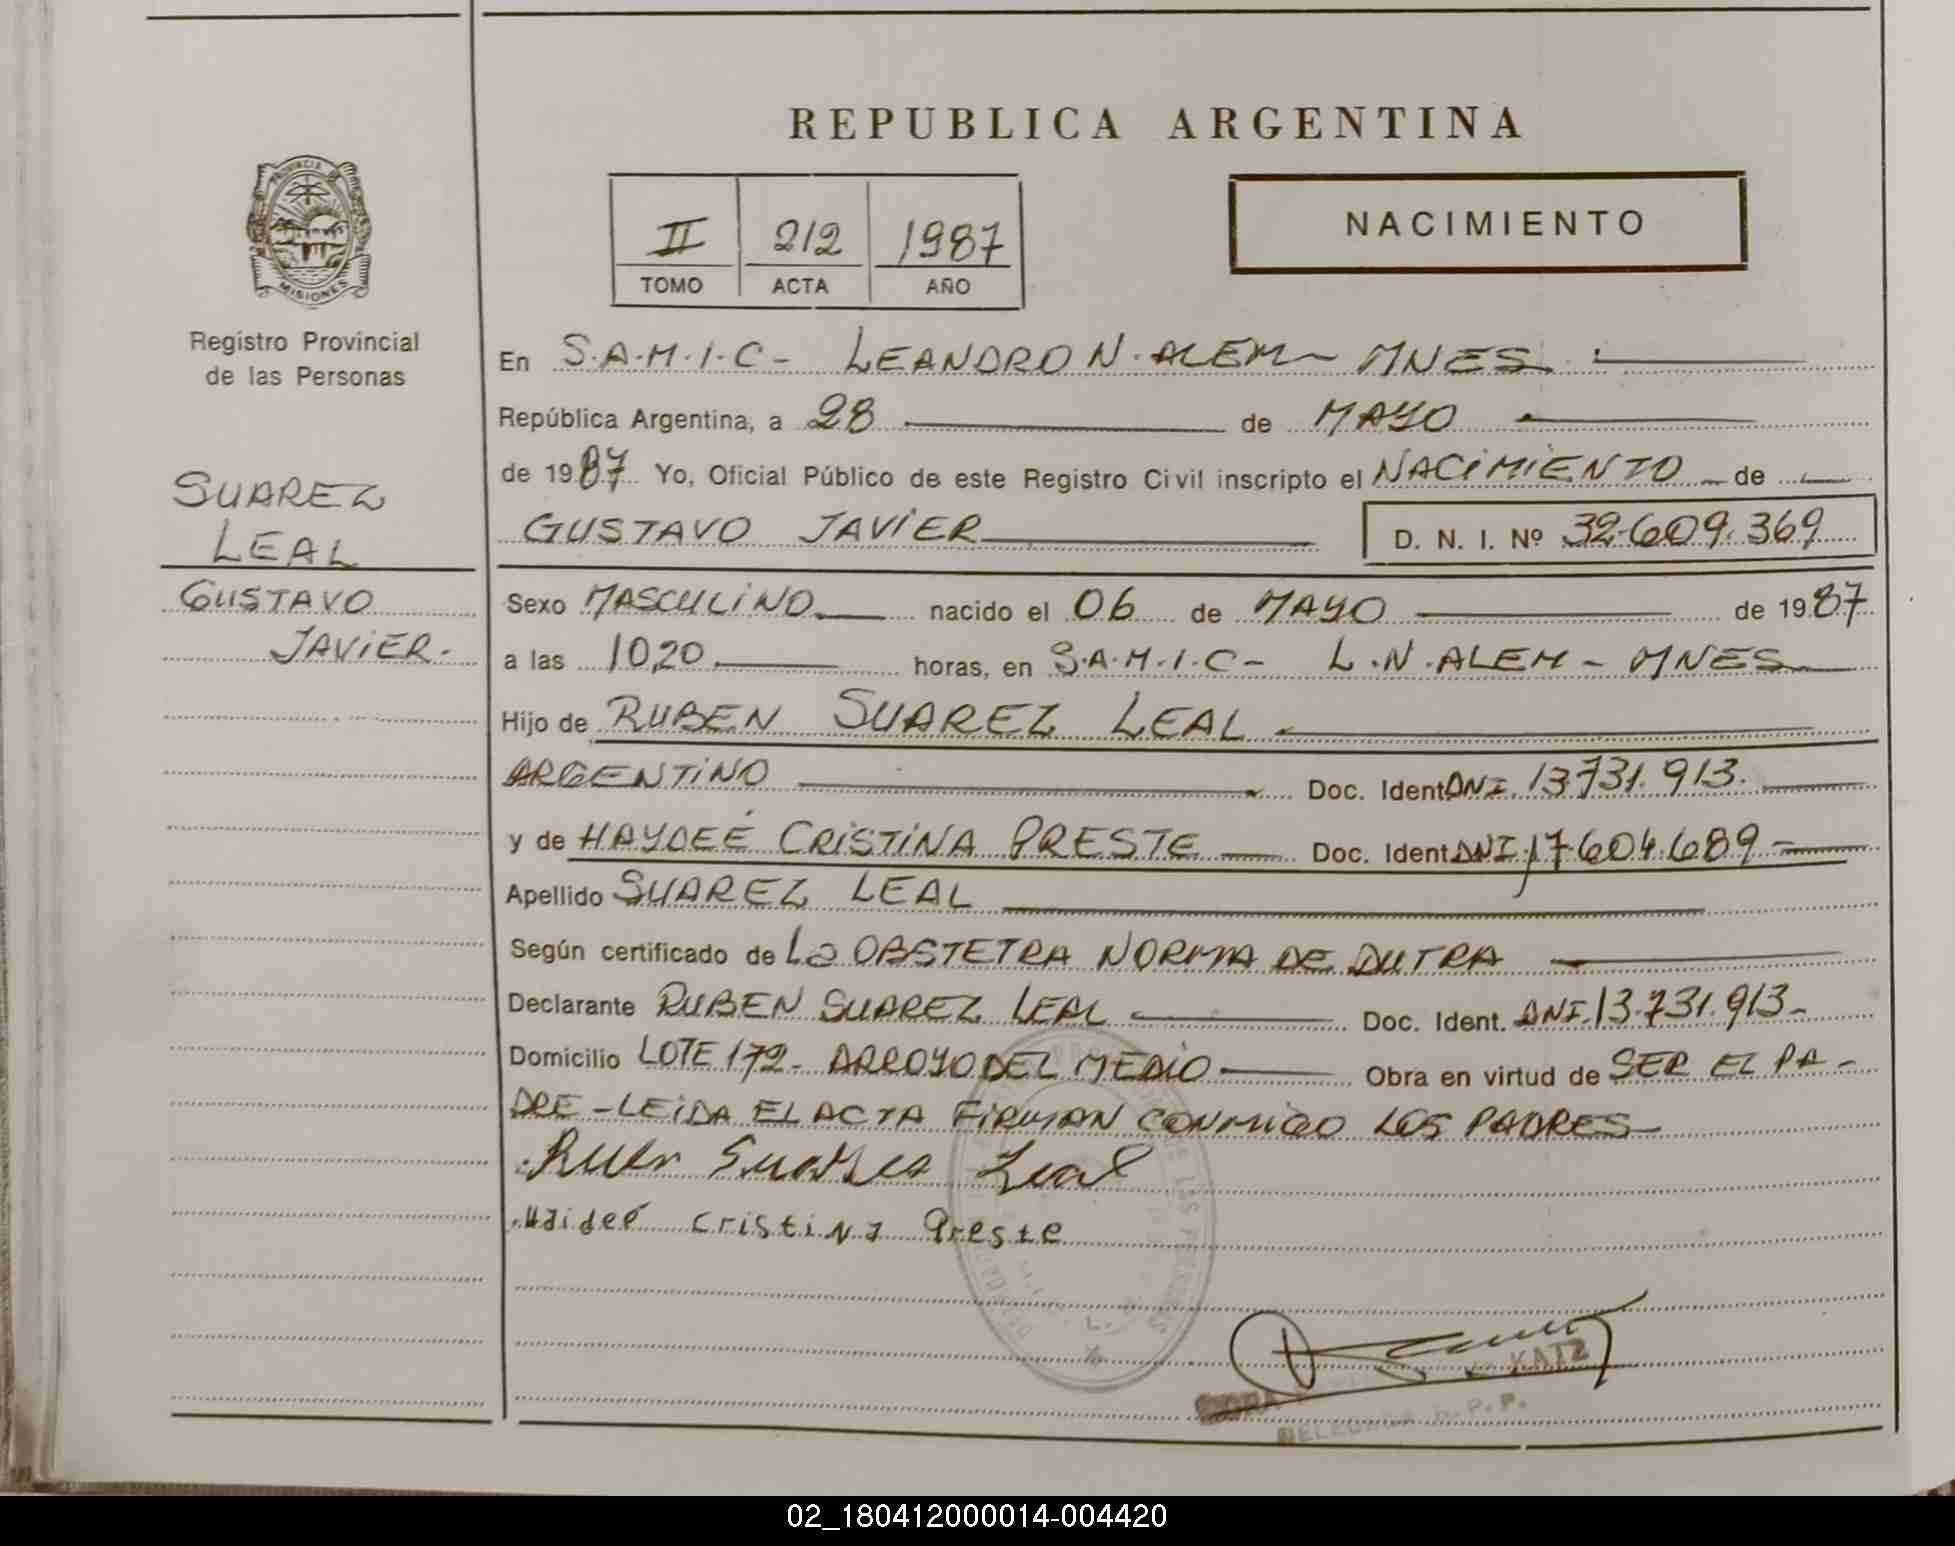 REPUBLICA ARGENTINA
PROVINCIA DE
MISIONES
Registro Provincial
de las Personas
SUAREZ
LEAL
GUSTAVO
JAVIER.
II 212 1987
TOMO ACTA AÑO
NACIMIENTO
En S.A.M.I.C- LEANDRO N. ALEM- MNES
República Argentina, a 28 de MAYO
de 1987 Yo, Oficial Público de este Registro Civil inscripto el NACIMIENTO de
GUSTAVO JAVIER D. N. I. Nº 32.609.369
Sexo MASCULINO nacido el 06 de MAYO de 1987
a las 10,20 horas, en S.A.M.I.C- L.N.ALEM- MNES
Hijo de RUBEN SUAREZ LEAL
ARGENTINO Doc. Ident DNI. 13.731.913.
y de HAYDEÉ CRISTINA PRESTE Doc. Ident DNI 17.604.689
Apellido SUAREZ LEAL
Según certificado de La OBSTETRA NORMA DE DUTRA
Declarante RUBEN SUAREZ LEAL Doc. Ident. DNI.13.731.913-
Domicilio LOTE 172- ARROYO DEL MEDIO Obra en virtud de SER EL PA-
DRE-LEIDA EL ACTA FIRMAN CONMIGO LOS PADRES
Ruben Suarez Leal
Haideé Cristina Preste
KATZ
DELEGADA R.P.P.
02_180412000014-004420